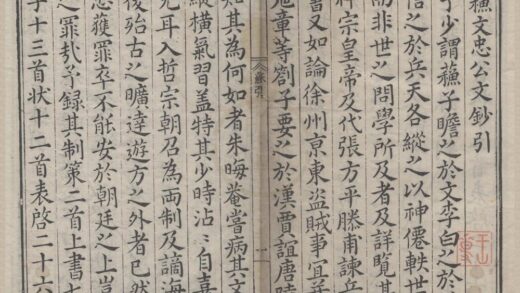 蘇文忠公文鈔引
予少謂蘇子瞻之於文李白之於
信之於兵天各縱之以神僊軼世
而非世之問學所及者及詳覽其
神宗皇帝及代張方平滕甫諫兵
又如論徐州京東盜賊事宜并
鬼章等劄子要之於漢賈誼唐陸
蘇引
一
知其為何如者朱晦菴嘗病其文
縱橫氣習蓋特其少時沾〻自喜
死耳入哲宗朝召為兩制及謫海
後殆古之曠達遊方之外者已然
忠獲罪卒不能安於朝廷之上豈
之罪哉予録其制策二首上書七
子十三首狀十二首表啓二十六